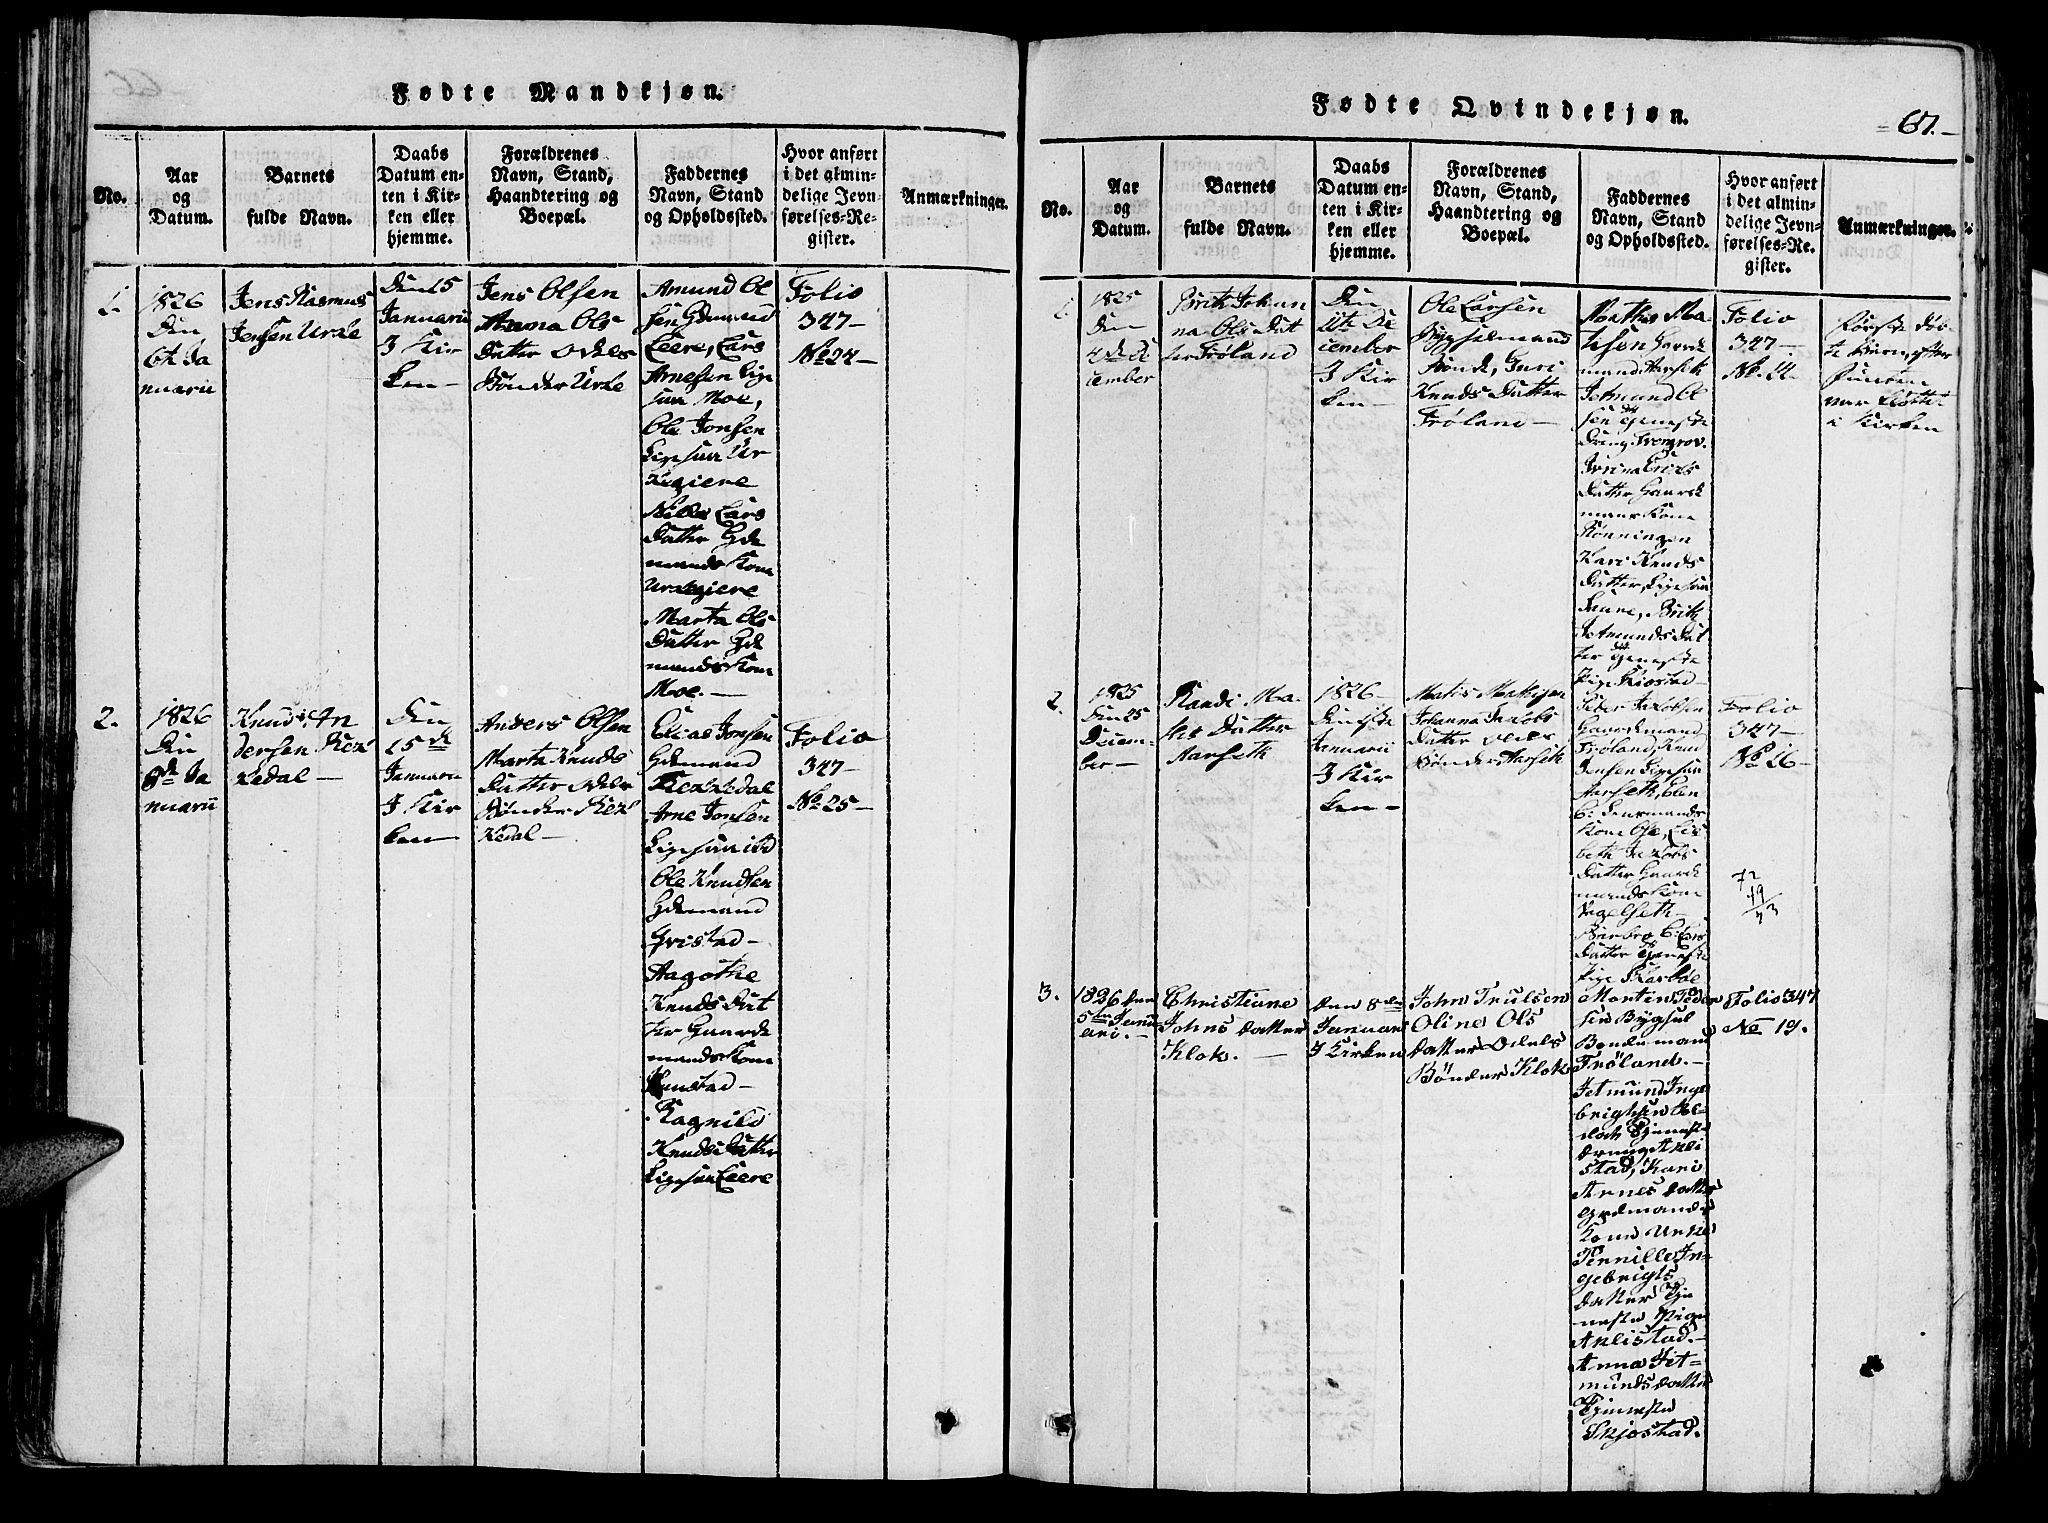 Fødte Mandkjøn.
No.
Aar
og
Datum.
Barnets
fulde Navn.
Daabs
Datum en-
ten i Kir-
ken eller
hjemme.
Forældrenes
Navn, Stand,
Haandtering og
Boepæl.
Faddernes
Navn, Stand
og Opholdssted.
Hvor anført
i det almin-
delige Jevn-
førelses-Re-
gister.
Anmærkninger.
1.
1826
Den
6te Ja
nuarii
Jens Rasmus
Jensen Urke
Den 15
Januarii
I Kir
ken
Jens Olsen
Anna Ols
Datter Odels
Bønder Urke
Amund Ol
sen Gdmand
Leere, Lars
Arnesen Lige
saa Moe,
Ole Jonsen
Ligesaa Ur
kegiere
Lars
Datter Gde
mands Kone
Urkegiere
Marta Ols
Datter Gde
mands Kone
Moe.
Folio
347
No 24
2.
1826
Den
8de Ja
nuarii
Knud An
dersen Rek
kedal
Den
15de
Januarii
I Kir
ken
Anders Olsen
Marta Knuds
Datter Odels
Bønder Rek
kedal
Elias Jonsen
Gdemand
Rekkedal
Arne Jonsen
Ligesaa ibd
Ole Knudsen
Gdemand
Aagothe
Knuds Dat
ter Gaarde
mands Kone
Ragnild
Knuds Datter
Ligesaa Leere
Folio
347
No 25
67.
Fødte Qvindekjøn.
No.
Aar
og
Datum.
Barnets
fulde Navn.
Daabs
Datum en-
ten i Kir-
ken eller
hjemme.
Forældrenes
Navn, Stand,
Haandtering og
Boepæl.
Faddernes
Navn, Stand
og Opholdssted.
Hvor anført
i det almin-
delige Jevn-
førelses-Re-
gister.
Anmærkninger.
1.
1825
Den
4de De
cember
Brite Johan
na Ols Dat
ter Frøland
Den
11te De
cember
I Kir
ken
Ole Larsen
Bygselmand
Bonde, Guri
Knuds Datter
Frøland
Mathis Ma
tisen Gaard
mand Aarseth
Jetmund Ol
sen Tieneste
Dreng
Erics
Datter Gaard
mands Kone
Rønningen
Kari Knuds
Datter, Ligesaa
Saure, Brite
Jetmunds Dat
ter Tieneste
Pige Skiostad
Folio
347
No. 14
Første Døb
te Barn, efter
Funten
var fløttet
i Kirken
2.
1825
Den 25
Decem-
ber
Randi Ma
tis Datter
Aarseth
1826
Den 1ste
Januarii
I Kir
ken
Matis Mathisen
Johanna Jakobs
Datter Odels
Bønder Aarseth
Peder Jakobsen
Gaardmand
Frøland, Knud
Jensen Ligesaa
Aarseth, Elen
Kone Ose, Lis
beth Jakobs
Datter Gaard
mands Kone
Datter Tieneste
Pige Skarbøe
Folio
347
No 16
72
19
/73
3.
1826 den
5te Janu
ari.
Christiane
Johns datter
Klok.
den 8de
Januari
I Kirken
John Trulsen
Oline Ols
datter Odels
Bönder Klok
Morten Peder
sen Bygsel
Bondemand
Fröland.
Jetmund Inge
brigtsen
Tjeneste
dreng Akli
stad, Kari
Arnes datter
Grdmands
Kone Urke
Pernille In-
gebrigts
datter Tje
neste Pige
Aklistad.
Anna Jet-
munds datter
Tjeneste
Skjostad.
Folio 347
No 19.